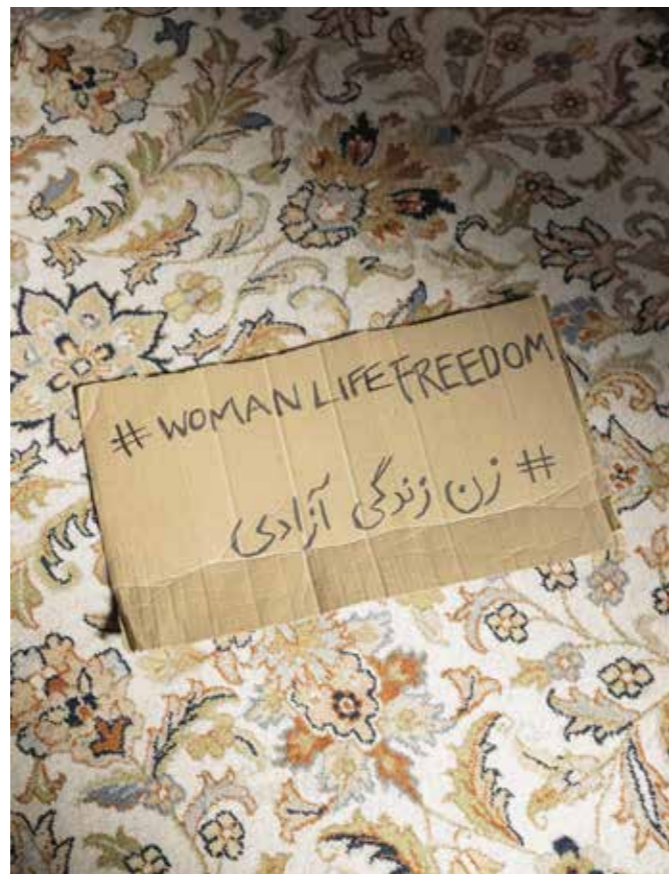 # WOMAN LIFE FREEDOM
# زن زندگی آزادی